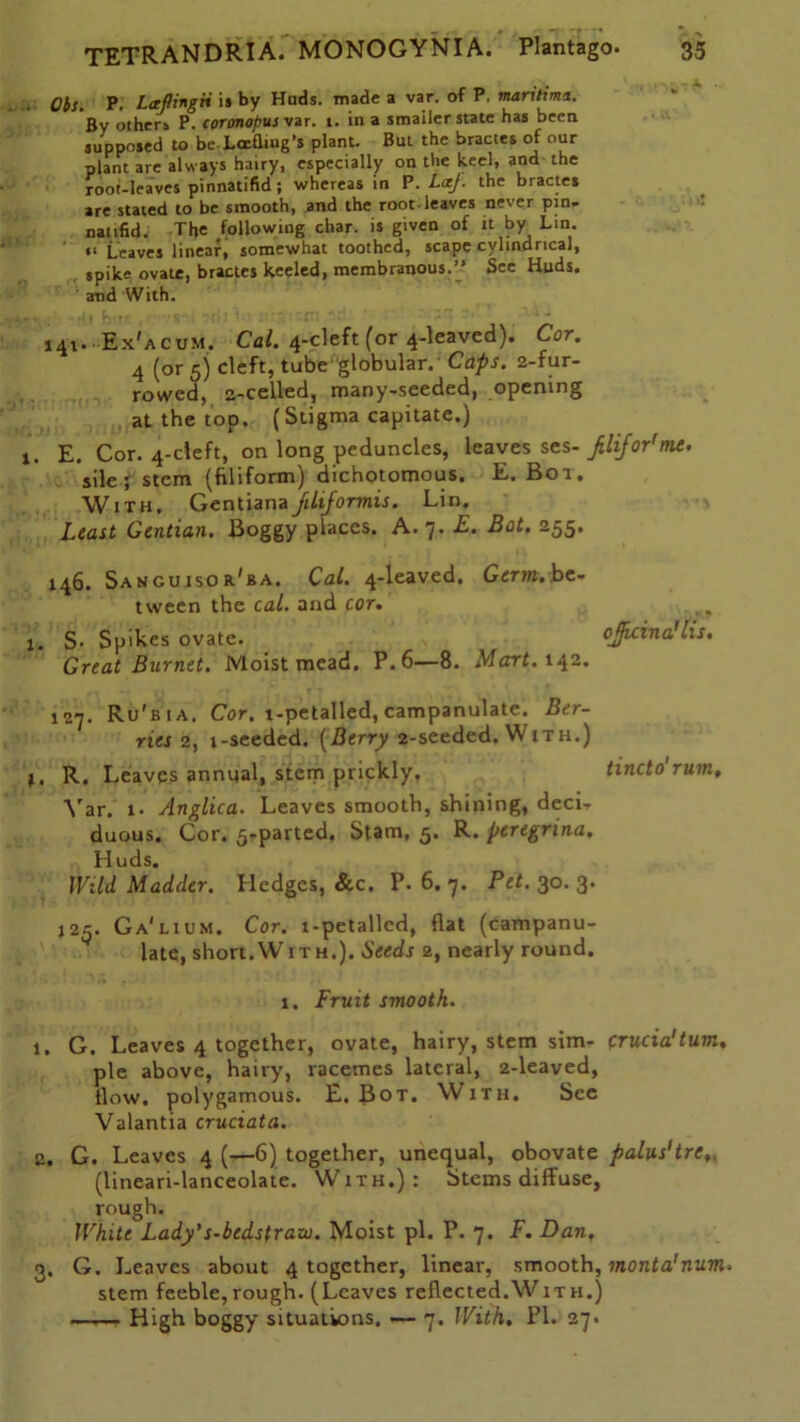 TETRANDRIA. MONOGYNIA. Plantago. 35
Obs. P. Lœflingii is by Huds. made a var. of P. maritima.
By others P. coronopus var. 1. in a smaller state has been
supposed to be Lœfling's plant. But the bractes of our
plant are always hairy, especially on the keel, and the
root-leaves pinnatifid; whereas in P. Lœf. the bractes
are stated to be smooth, and the root-leaves never pin-
natifid. The following char. is given of it by Lin.
“ Leaves linear, somewhat toothed, scape cylindrical,
spike ovate, bractes keeled, membranous.” See Huds.
and With.
141. Ex'acum. Cal. 4-cleft (or 4-leaved). Cor.
4 (or 5) cleft, tube globular. Caps. 2-fur-
rowed, 2-celled, many-seeded, opening
at the top. (Stigma capitate.)
1. E. Cor. 4-cleft, on long peduncles, leaves ses- filifor'me.
sile; stem (filiform) dichotomous. E. Bot.
With. Gentiana filiformis. Lin.
Least Gentian. Boggy places. A. 7. E. Bot. 255.
146. Sanguisor'ba. Cal. 4-leaved. Germ. be-
tween the cal. and cor.
1. S. Spikes ovate. officina'lis.
Great Burnet. Moist mead. P. 6—8. Mart. 142.
127. Ru'bia. Cor. 1-petalled, campanulate. Ber-
ries 2, 1-seeded. (Berry 2-seeded. With.)
1. R. Leaves annual, stem prickly. tincto'rum.
Var. 1. Anglica. Leaves smooth, shining, deci-
duous. Cor. 5-parted. Stam. 5. R. peregrina.
Huds.
Wild Madder. Hedges, &c. P. 6. 7. Pet. 30. 3.
125. Ga'lium. Cor. 1-petalled, flat (campanu-
late, short. With.). Seeds 2, nearly round.
1. Fruit smooth.
1. G. Leaves 4 together, ovate, hairy, stem sim- crucia'tum.
ple above, hairy, racemes lateral, 2-leaved,
flow. polygamous. E. Bot. With. See
Valantia cruciata.
2. G. Leaves 4 (—6) together, unequal, obovate palus'tre.
(lineari-lanceolate. With.): Stems diffuse,
rough.
White Lady's-bedstraw. Moist pl. P. 7. F. Dan.
3. G. Leaves about 4 together, linear, smooth, monta'num.
stem feeble, rough. (Leaves reflected. With.)
—— High boggy situations. — 7. With. Pl. 27.